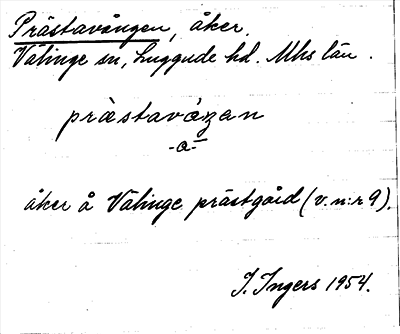 Prästavången, åker.
Välinge sn, Luggude hd. Mhs län.
prästavåŋan
-a-
åker å Välinge prästgård (v. n:r 9).
I. Ingers 1954.